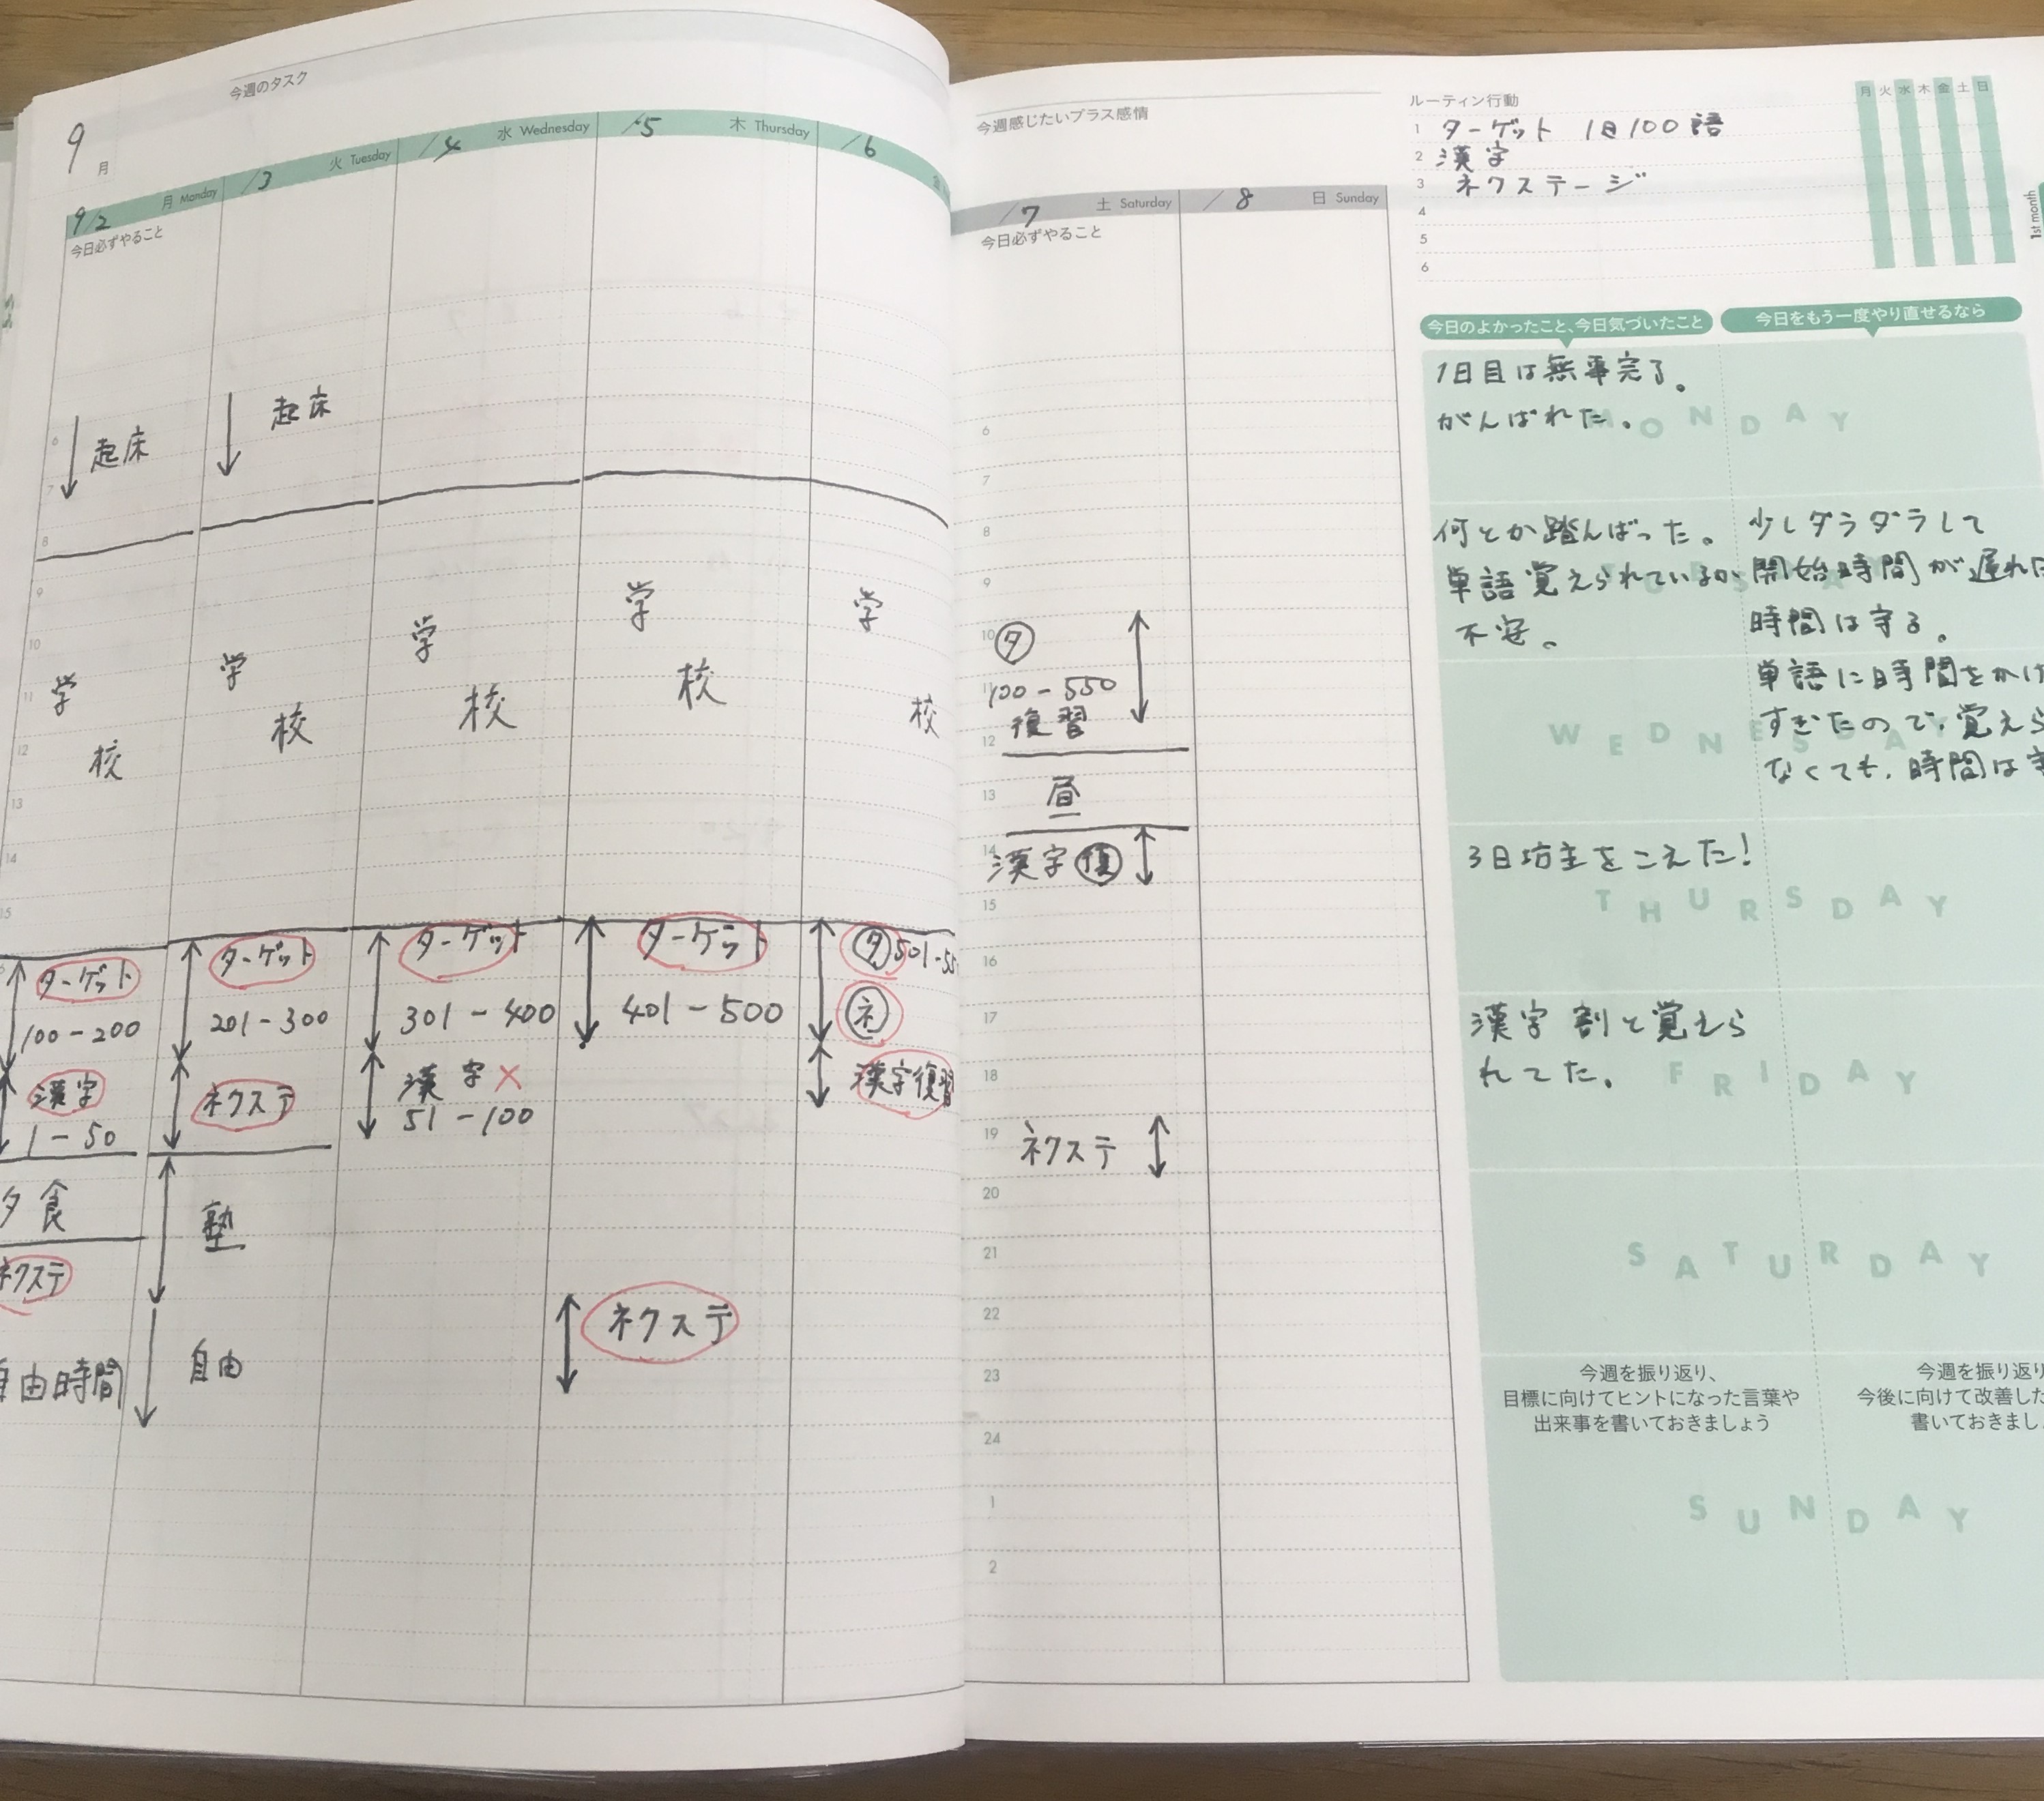 今週のタスク
9月
9/2 月 Monday
/3 火 Tuesday
/4 水 Wednesday
/5 木 Thursday
/6
今日必ずやること
6
7
8
9
10
11
12
13
14
15
起床
学校
ターゲット
100-200
漢字
1-50
夕食
ネクステ
自由時間
起床
学校
ターゲット
201-300
ネクステ
塾
自由
学校
ターゲット
301-400
漢字×
51-100
学校
ターゲット
401-500
ネクステ
学校
タ 501-55
ネ
漢字復習
今週感じたいプラス感情
/7 土 Saturday
/8 日 Sunday
今日必ずやること
6
7
8
9
10
タ
11
100-550
復習
12
13
昼
14
漢字 復
15
16
17
18
19
ネクステ
20
21
22
23
24
1
2
ルーティン行動
月 火 水 木 金 土 日
1 ターゲット 1日100語
2 漢字
3 ネクステージ
4
5
6
1st month
今日のよかったこと、今日気づいたこと
今日をもう一度やり直せるなら
MONDAY
1日目は無事完了。
がんばれた。
何とか踏んばった。
単語覚えられているか
不安。
少しダラダラして
開始時間が遅れ
時間は守る。
WEDNESDAY
単語に時間をかけ
すぎたので、覚えら
なくても、時間は
THURSDAY
3日坊主をこえた!
FRIDAY
漢字割と覚えら
れてた。
SATURDAY
今週を振り返り、
目標に向けてヒントになった言葉や
出来事を書いておきましょう
今週を振り返り
今後に向けて改善した
書いておきまし
SUNDAY